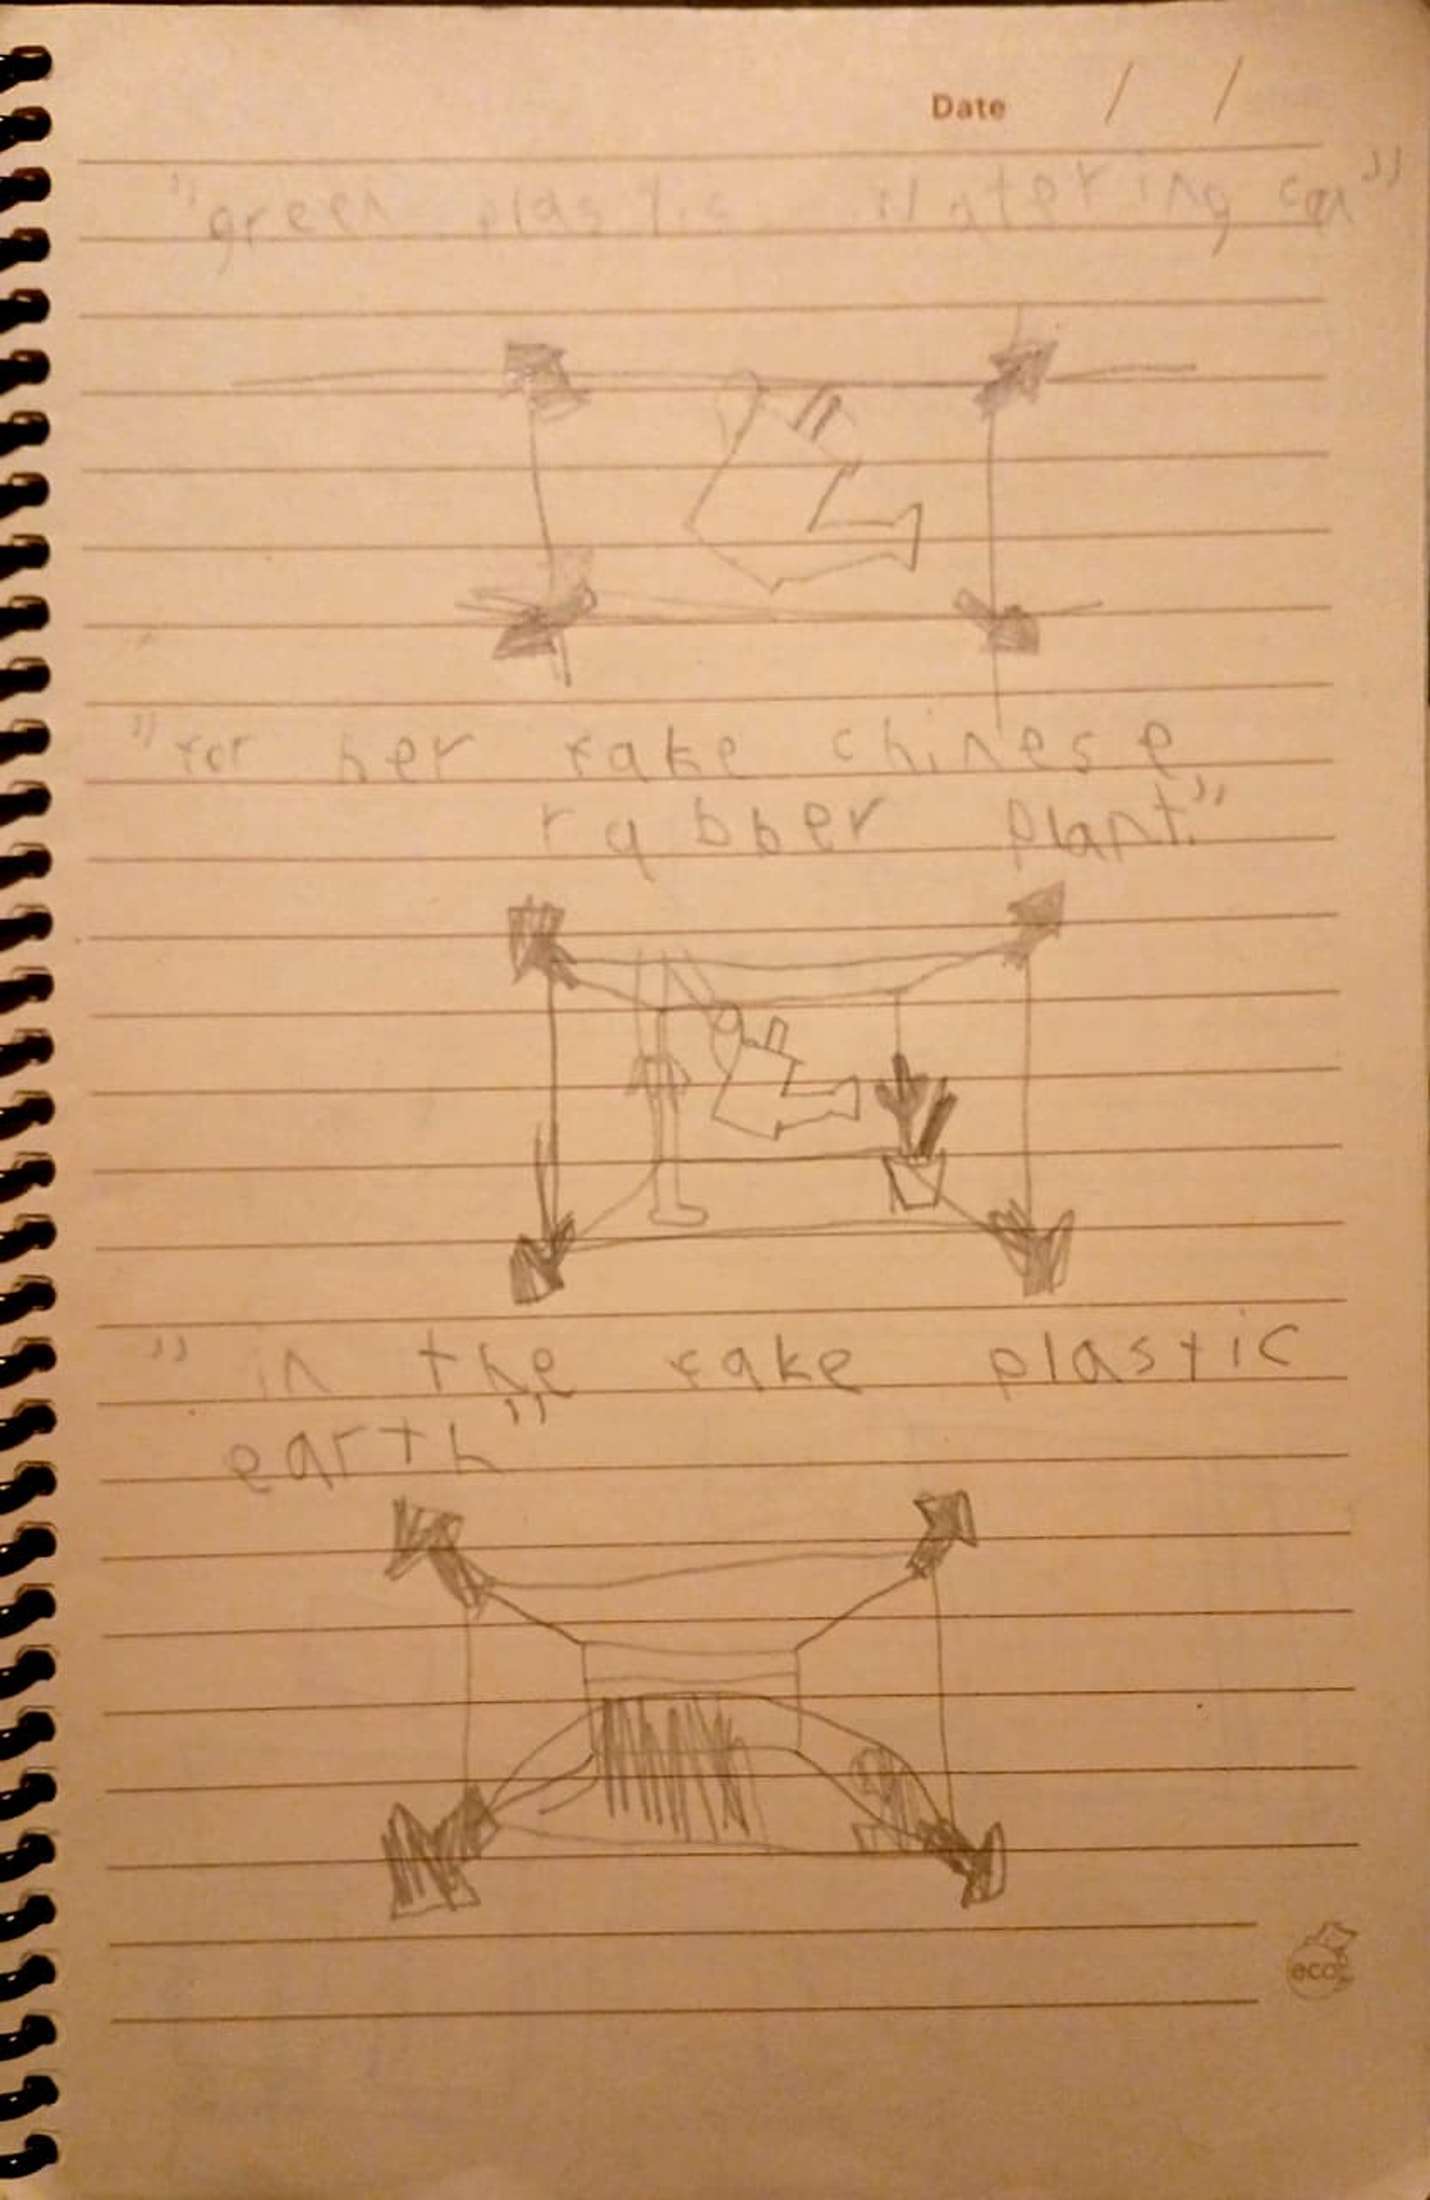 Date / /
"green plastic watering can"
"for her fake chinese
rubber plant."
"in the fake plastic
earth"
eco